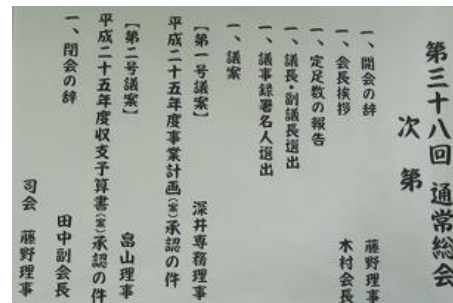 第三十八回 通常総会
次第
一、開会の辞 藤野理事
一、会長挨拶 木村会長
一、定足数の報告
一、議長・副議長選出
一、議事録署名人選出
一、議案
【第一号議案】 深井専務理事
平成二十五年度事業計画(案)承認の件
【第二号議案】 畠山理事
平成二十五年度収支予算書(案)承認の件
一、閉会の辞 田中副会長
司会 藤野理事